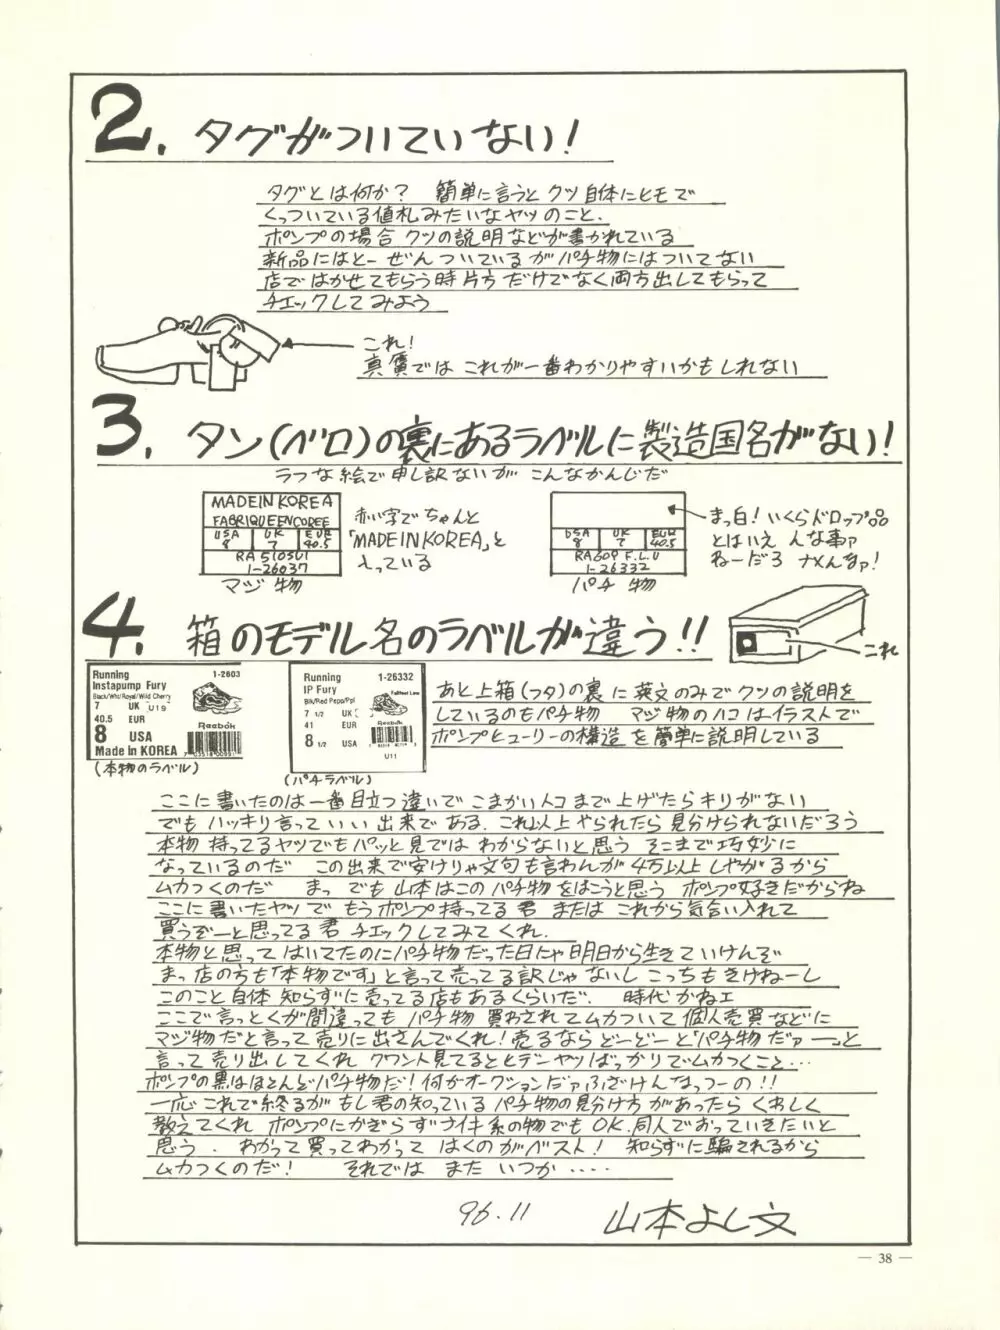 2. タグがついていない!
タグとは何か? 簡単に言うとクツ自体にヒモで
くっついている値札みたいなヤツのこと.
ポンプの場合 クツの説明などが書かれている
新品にはとーぜんついているがパチ物にはついてない
店ではかせてもらう時片方だけでなく両方出してもらって
チェックしてみよう
これ!
真贋では これが一番わかりやすいかもしれない
3. タン(ベロ)の裏にあるラベルに製造国名がない!
ラフな絵で申し訳ないが こんなかんじだ
MADEIN KOREA
FABRIQUEENCOREE
USA 8 UK 7 EUR 40.5
RA 510SU1
1-26037
マジ物
赤い字でちゃんと
「MADEINKOREA」と
入っている
USA 8 UK 7 EUR 40.5
RA609 F.L.U
1-26332
パチ物
まっ白! いくらドロップ品
とはいえ んな事ァ
ねーだろ ナメんなァ!
4. 箱のモデル名のラベルが違う!!
これ
Running 1-2603
Instapump Fury
Black/Wht/Royal/Wild Cherry
7 UK U19
40.5 EUR
Reebok
8 USA
Made in KOREA
(本物のラベル)
Running 1-26332
IP Fury
Blk/Red Pepo/Ppl
7 1/2 UK
41 EUR
8 1/2 USA
U11
(パチラベル)
あと上箱(フタ)の裏に英文のみでクツの説明を
しているのもパチ物 マジ物のハコはイラストで
ポンプヒューリーの構造を簡単に説明している
ここに書いたのは一番目立つ違いで こまかいトコまで上げたらキリがない
でもハッキリ言っていい出来である. これ以上やられたら見分けられないだろう
本物持ってるヤツでもパッと見ではわからないと思う そこまで巧妙に
なっているのだ この出来で安けりゃ文句も言わんが4万以上しやがるから
ムカつくのだ まっ でも山本はこのパチ物をはこうと思う ポンプ好きだからね
ここに書いたヤツでもうポンプ持ってる君 または これから気合い入れて
買うぞーと思ってる君 チェックしてみてくれ.
本物と思って はいてたのにパチ物だった日にゃ明日から生きていけんぞ
まっ店の方も「本物です」と言って売ってる訳じゃないし こっちもきけねーし
このこと自体 知らずに売ってる店もあるくらいだ. 時代かねェ
ここで言っとくが間違っても パチ物 買わされてムカついて個人売買などに
マジ物だと言って売りに出さんでくれ! 売るならどーどーと「パチ物だァー」と
言って売り出してくれ クワント見てるととデーヤツばっかりでムカつくこと…
ポンプの黒はほとんどパチ物だ! 何がオークションだァふざけんなっつーの!!
一応これで終るが もし君の知っているパチ物の見分け方があったら くわしく
教えてくれ ポンプにかぎらずナイキ系の物でもOK. 同人でおっていきたいと
思う. わかって買ってわかって はくのがベスト! 知らずに騙されるから
ムカつくのだ! それでは また いつか ‥‥
96.11 山本よし文
— 38 —